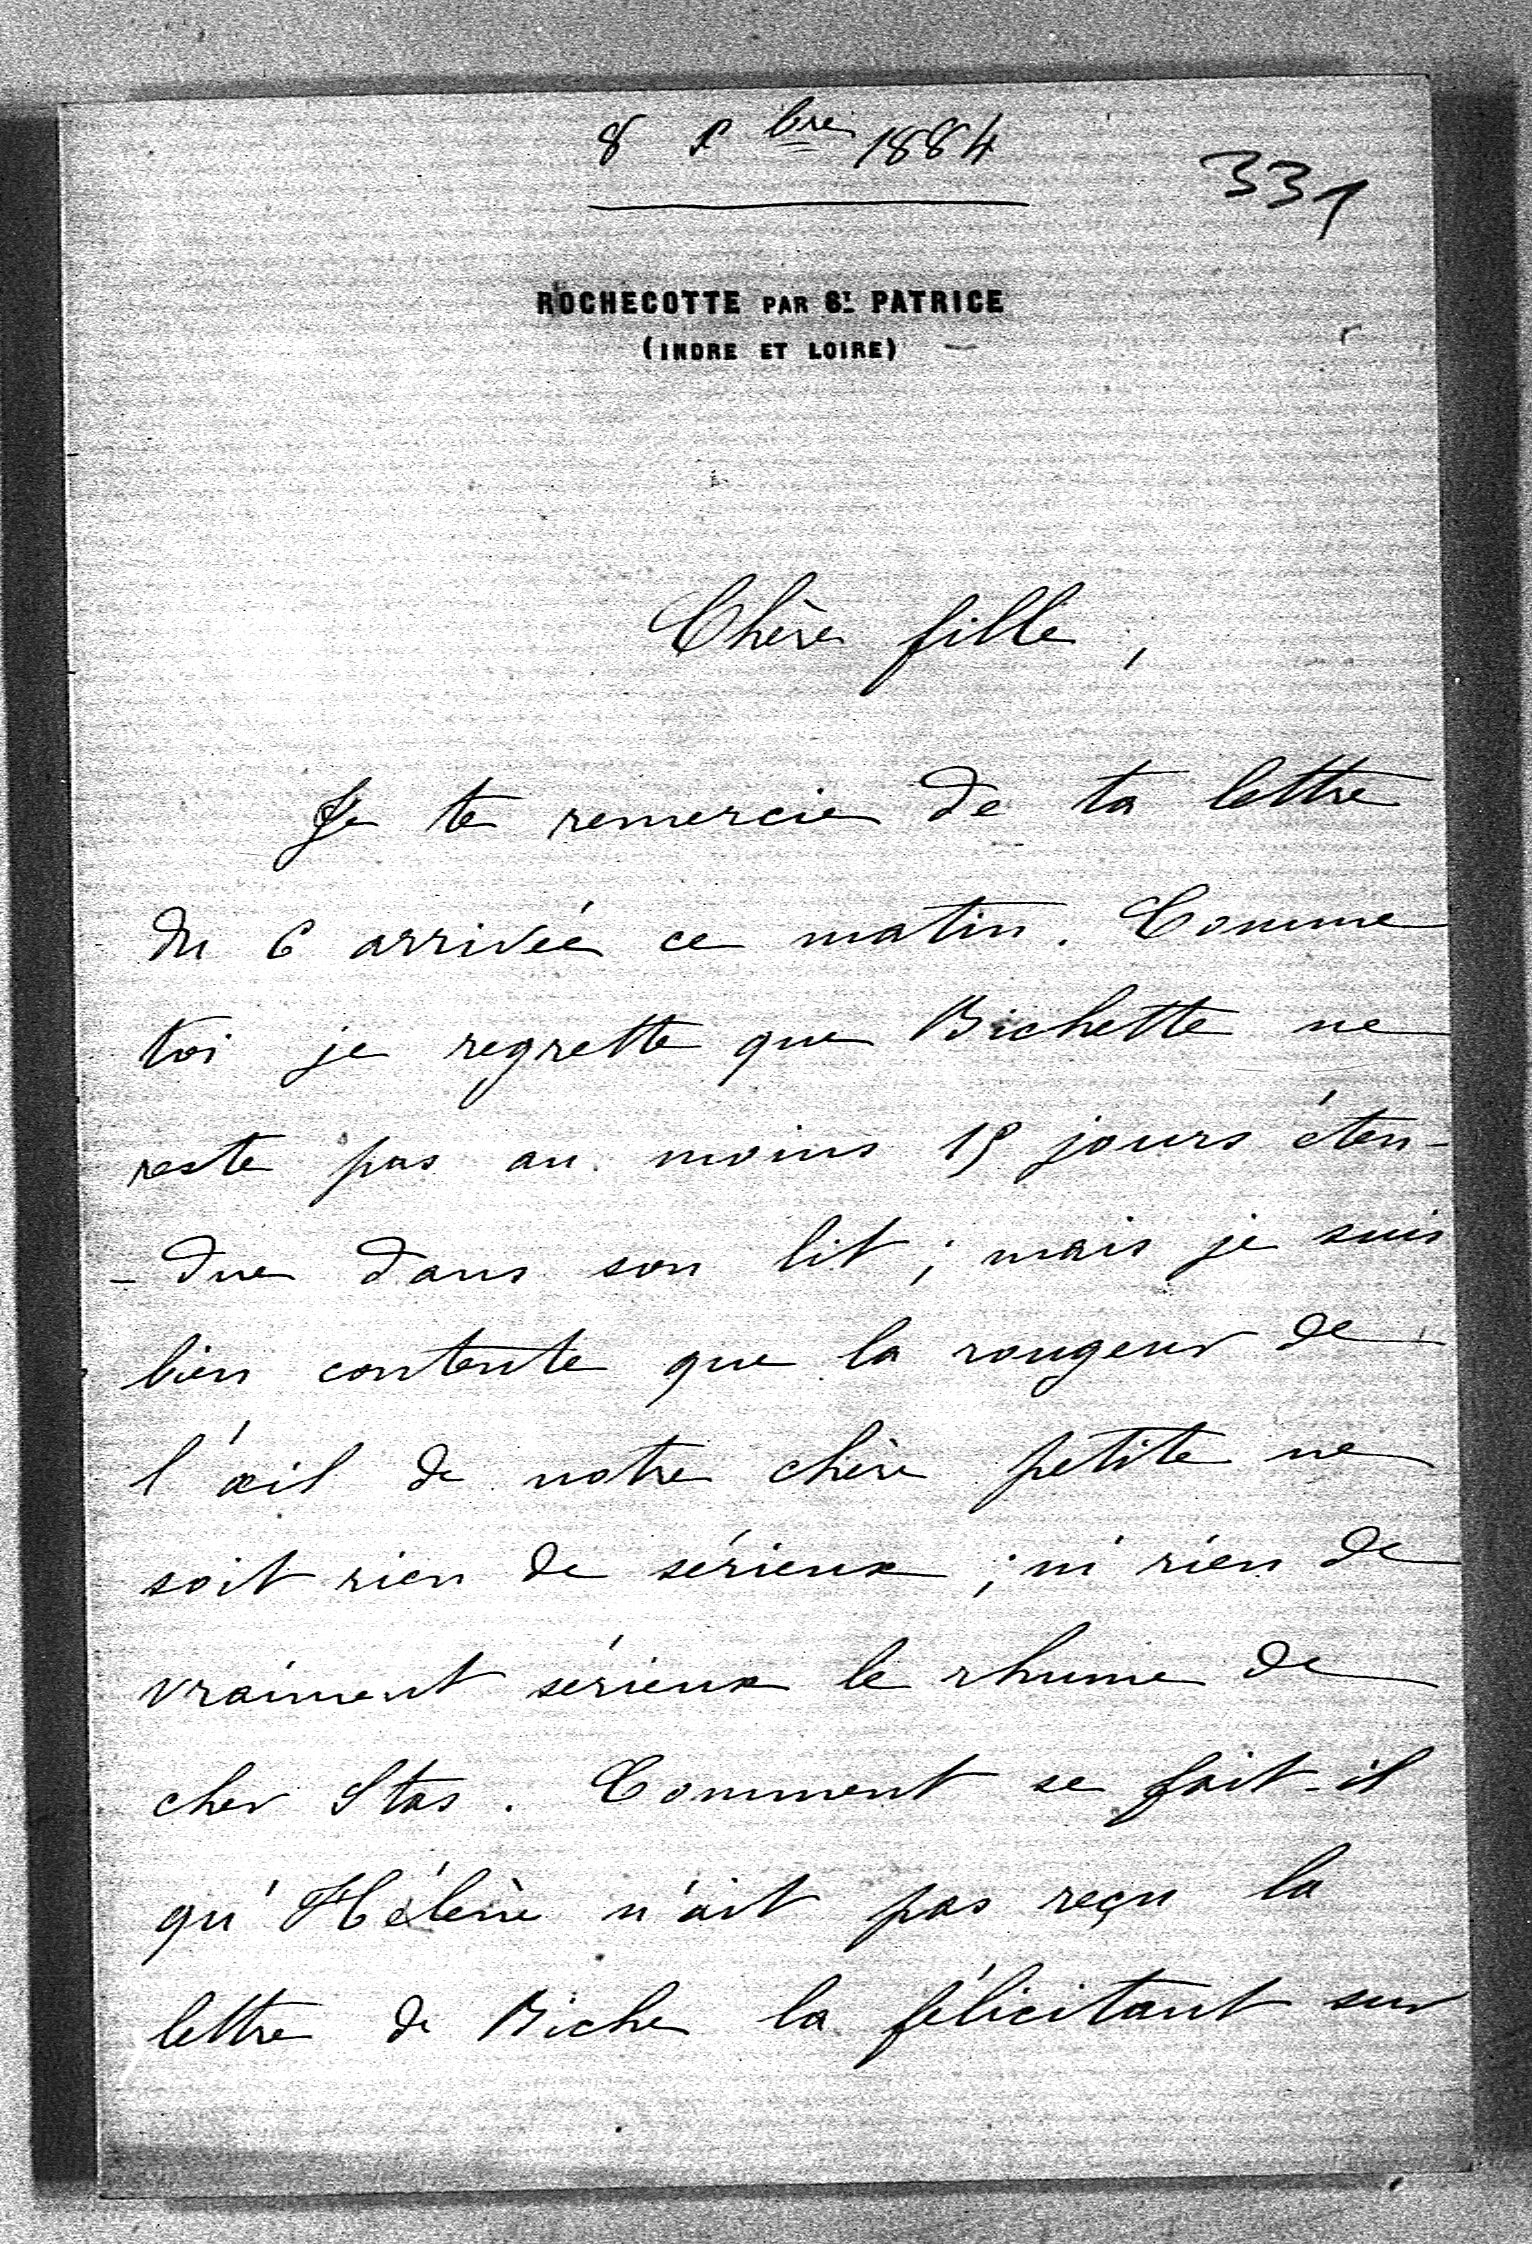 8 xbre 1884
331
ROCHECOTTE PAR ST PATRICE
(INDRE ET LOIRE)
Chère fille,
Je te remercie de ta lettre
du 6 arrivée ce matin. Comme
toi je regrette que Bichette ne
reste pas au moins 15 jours éten-
-due dans son lit ; mais je suis
bien contente que la rougeur de
l'œil de notre chère petite ne
soit rien de sérieux ; ni rien de
vraiment sérieux le rhume de
cher Stas. Comment se fait-il
qu'Hélène n'ait pas reçu la
lettre de Biche la félicitant sur